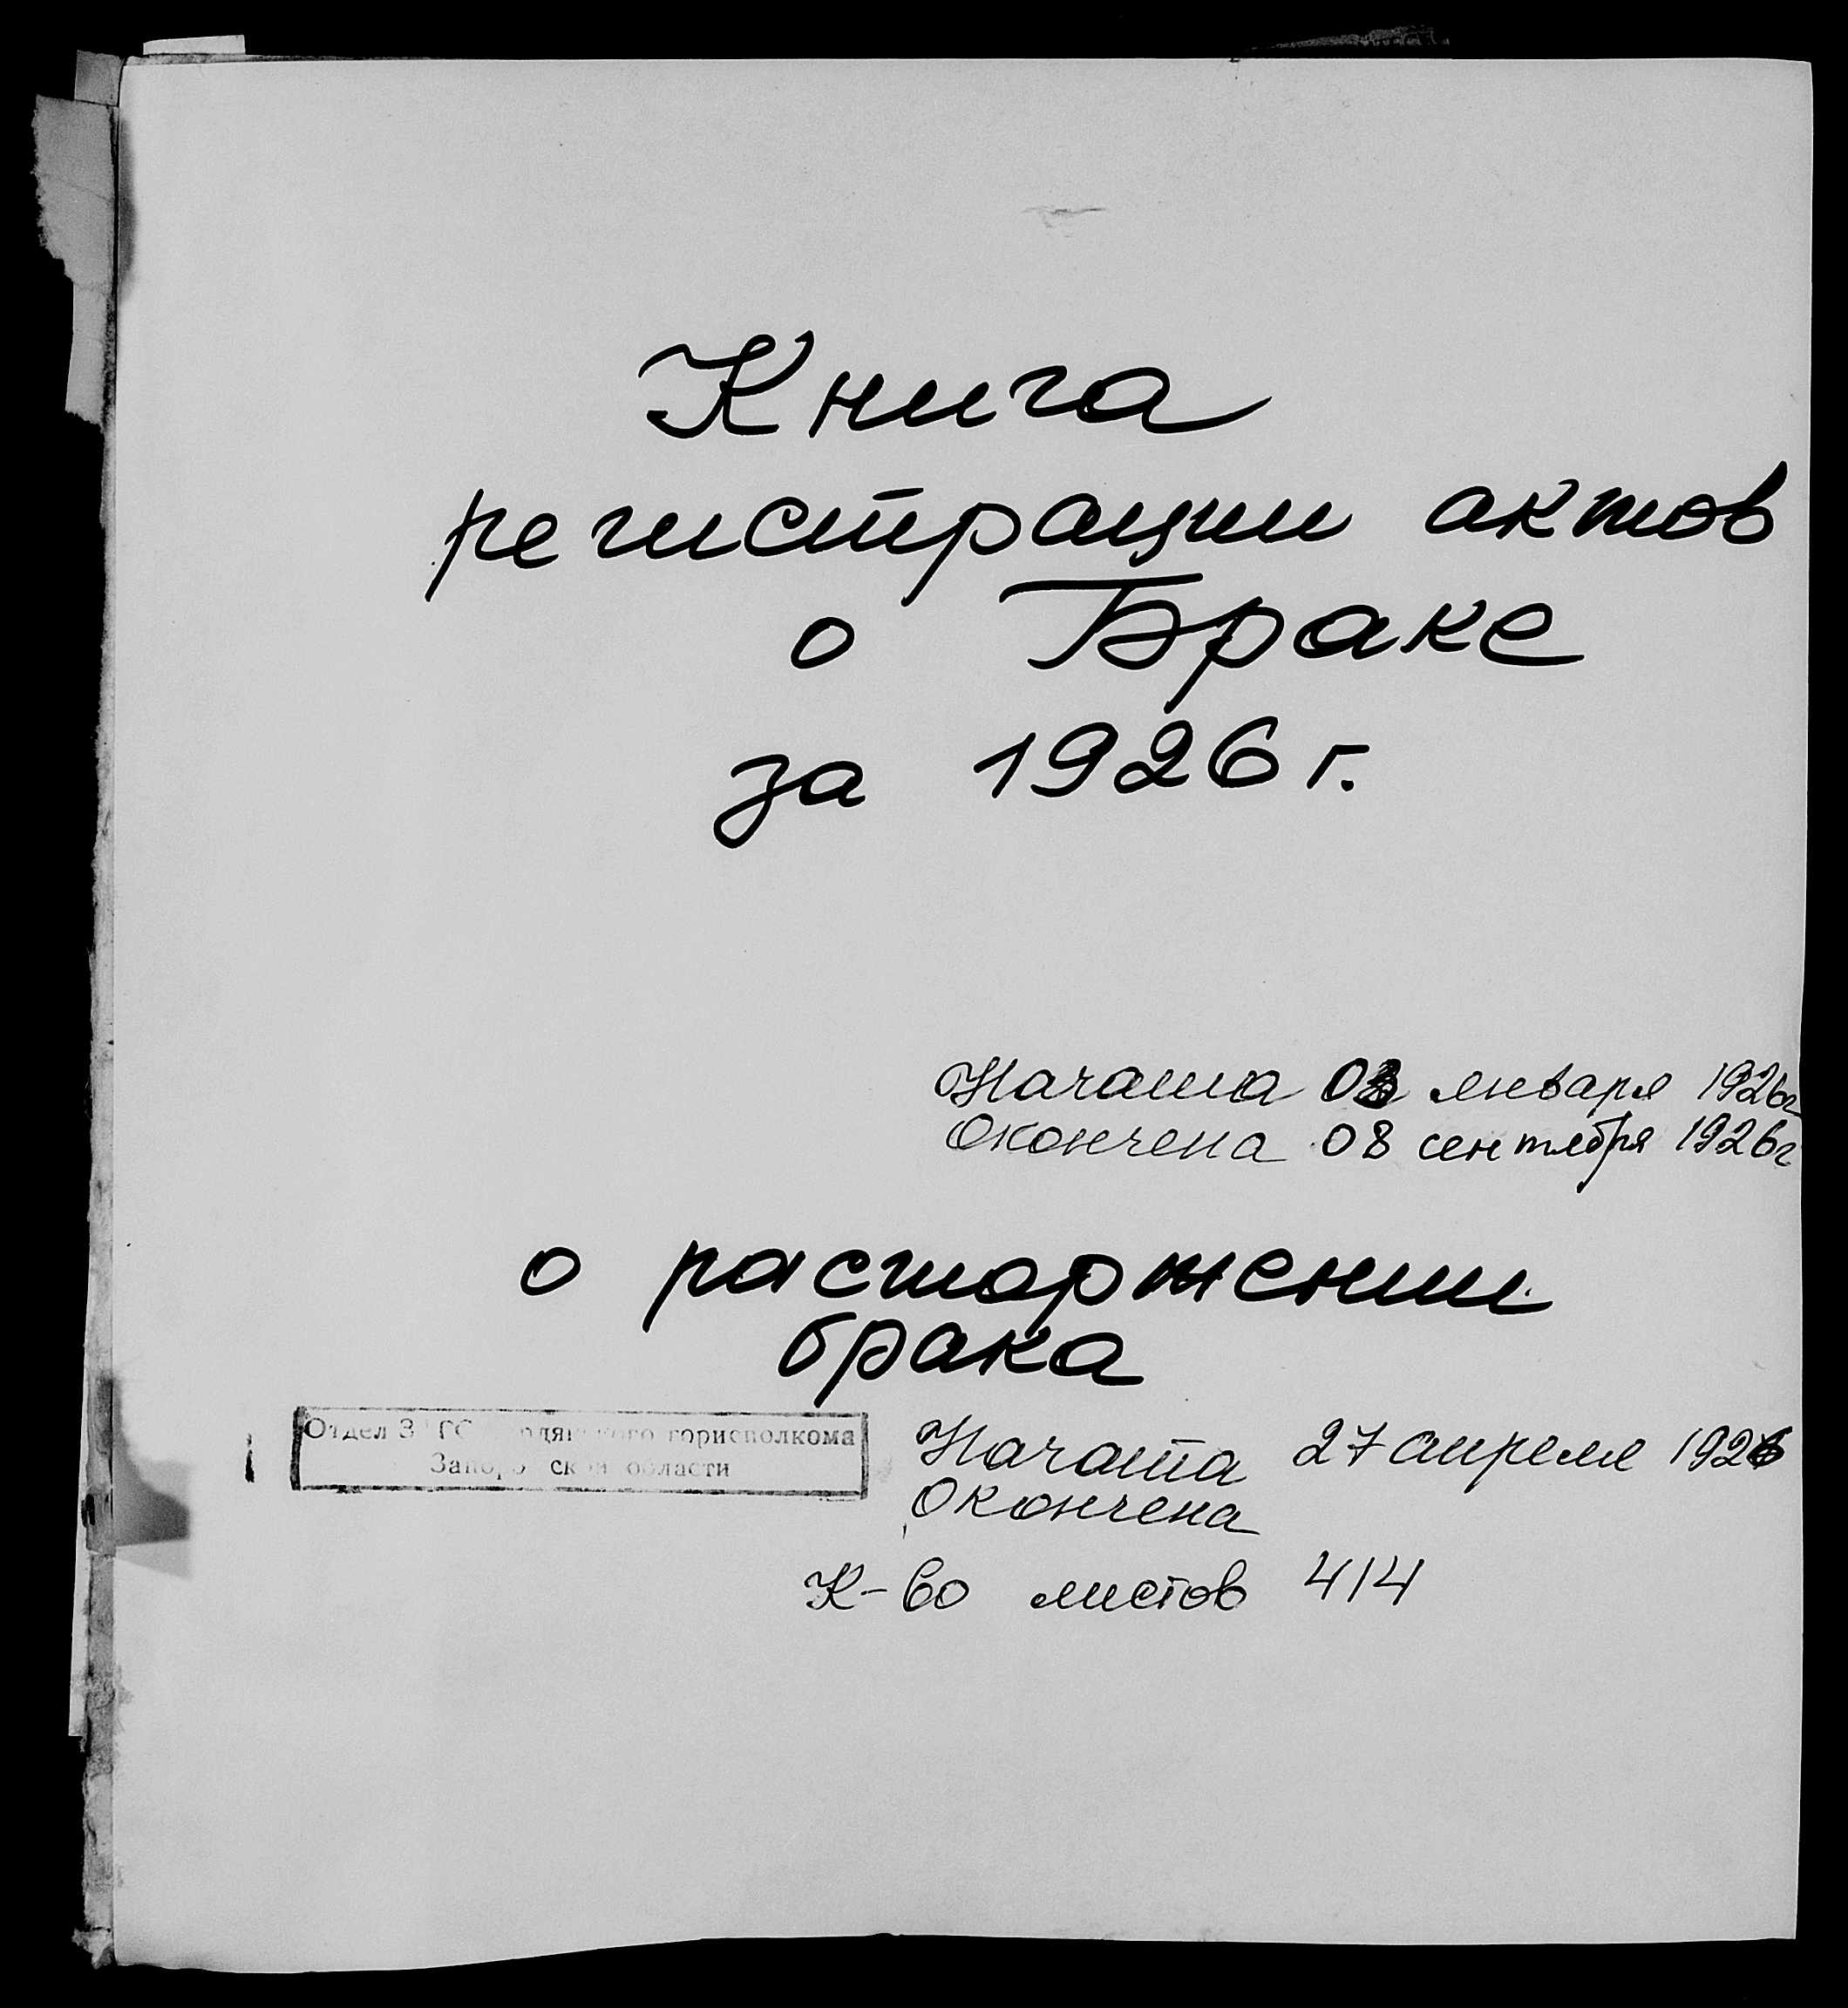 Книга
регистрации актов
о Браке
за 1926 г.
Начата 03 января 1926г
Окончена 08 сентября 1926г
о расторжении
брака
Отдел горисполкома
области
Начата 27 апреля 1926
Окончена
К-во листов 414